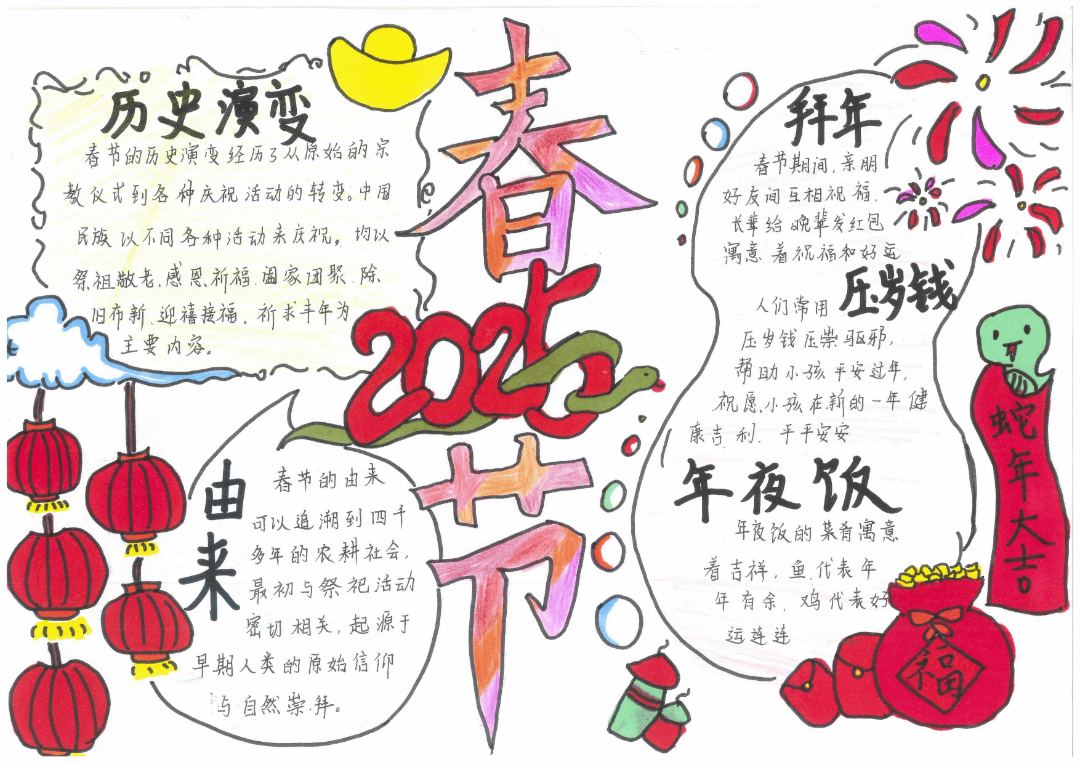 历史演变
春节的历史演变经历了从原始的宗
教仪式到各种庆祝活动的转变。中国
民族以不同各种活动来庆祝，均以
祭祖敬老、感恩祈福、阖家团聚、除
旧布新、迎禧接福、祈求丰年为
主要内容。
春
2025
节
由来
春节的由来
可以追溯到四千
多年的农耕社会，
最初与祭祀活动
密切相关，起源于
早期人类的原始信仰
与自然崇拜。
拜年
春节期间，亲朋
好友间互相祝福.
长辈给晚辈发红包
寓意着祝福和好运
压岁钱
人们常用
压岁钱压祟驱邪，
帮助小孩平安过年，
祝愿小孩在新的一年健
康吉利、平平安安
年夜饭
年夜饭的菜肴寓意
着吉祥，鱼代表年
年有余，鸡代表好
运连连
蛇年大吉
福